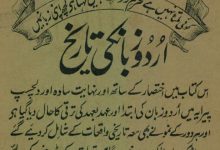 اُردو زبان کی تاریخ
اس کتاب میں اختصار کے ساتھ اور نہایت سادہ اور دلچسپ
پیرایہ میں اُردو زبان کی ابتدا اور عہد بعہد کی ترقی کا حال دیا گیا ہے
اور ہر دور کے نمونے بھی معہ تاریخی واقعات کے شامل کر دیے گئے